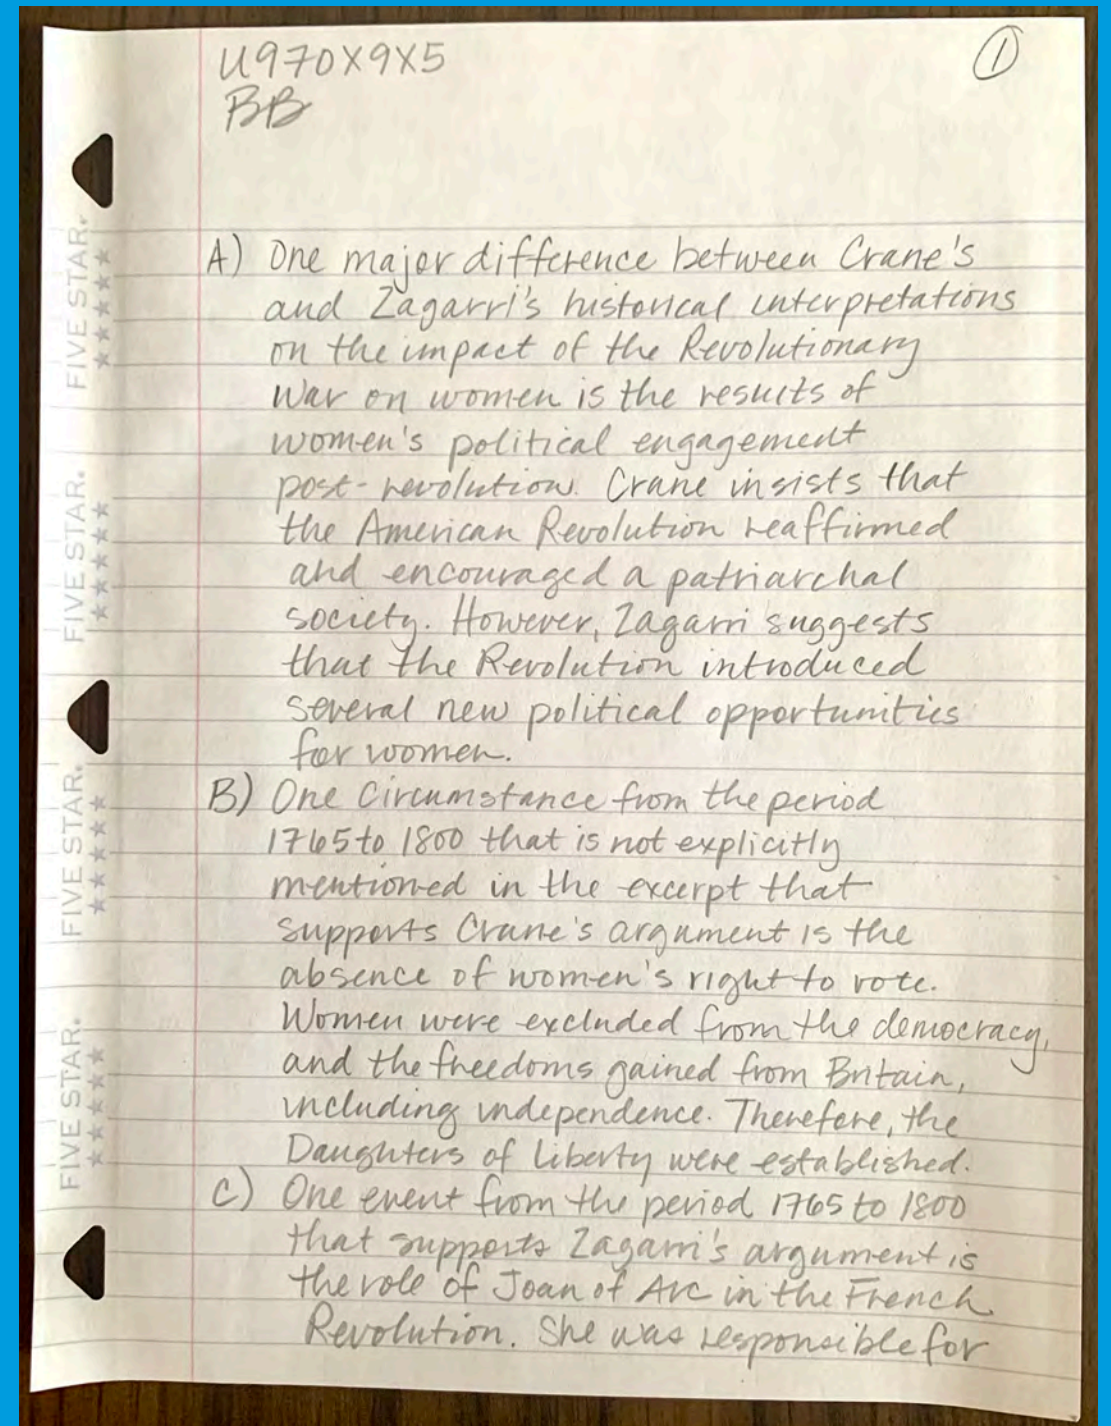 U970X9X5
1
BB
A) One major difference between Crane's
and Zagarri's historical interpretations
on the impact of the Revolutionary
War on women is the results of
women's political engagement
post-revolution. Crane insists that
the American Revolution reaffirmed
and encouraged a patriarchal
society. However, Zagarri suggests
that the Revolution introduced
several new political opportunities
for women.
B) One circumstance from the period
1765 to 1800 that is not explicitly
mentioned in the excerpt that
supports Crane's argument is the
absence of women's right to vote.
Women were excluded from the democracy,
and the freedoms gained from Britain,
including independence. Therefore, the
Daughters of Liberty were established.
C) One event from the period 1765 to 1800
that supports Zagarri's argument is
the role of Joan of Arc in the French
Revolution. She was responsible for
FIVE STAR.
FIVE STAR.
FIVE STAR.
FIVE STAR.